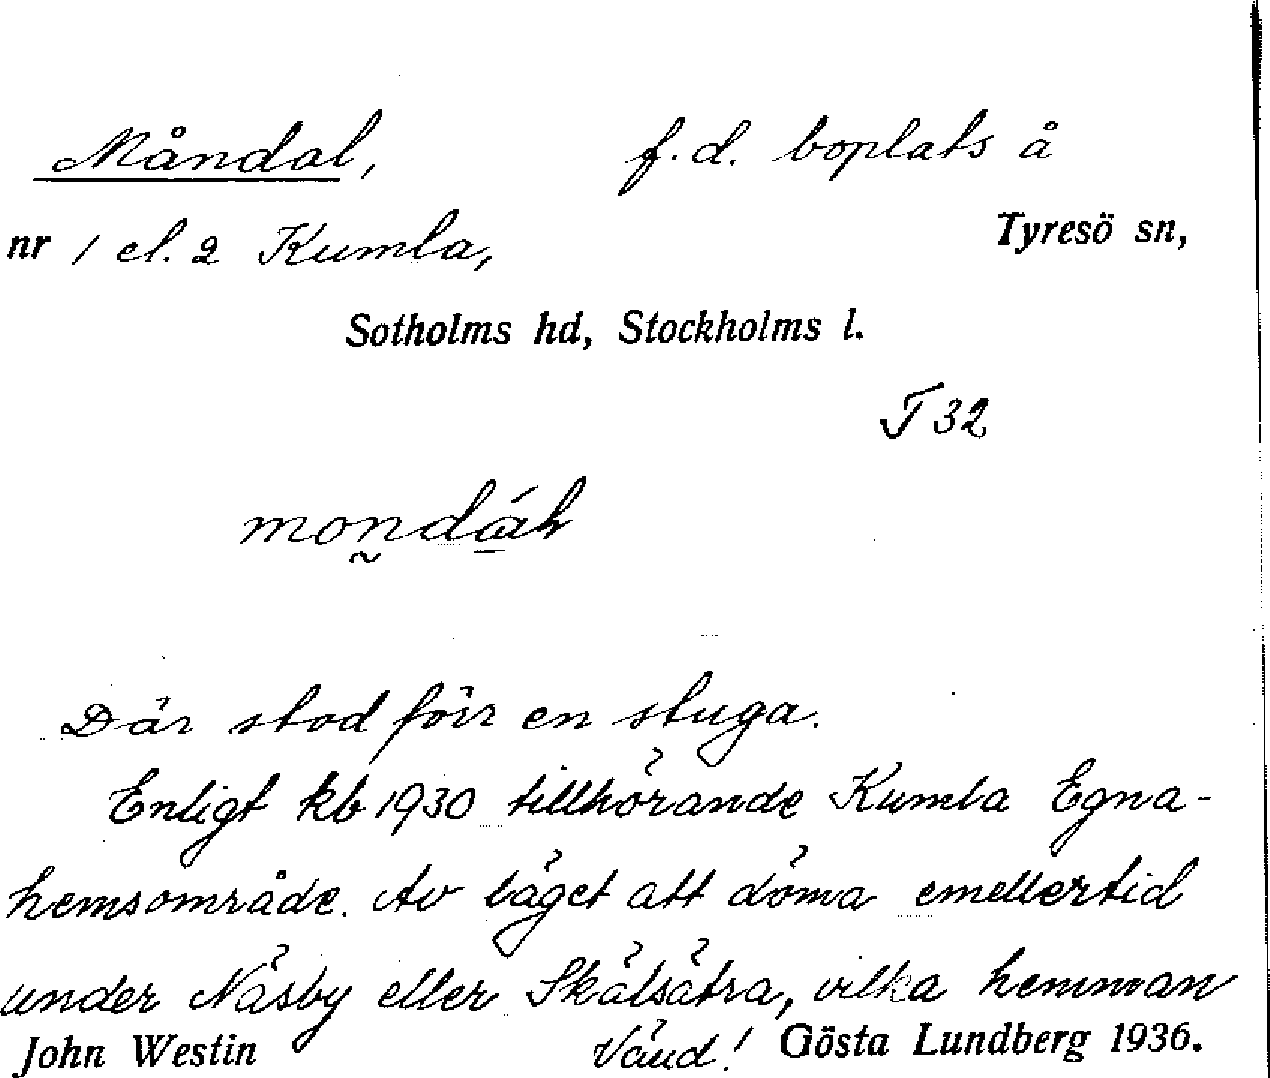 Måndal, f.d. boplats å
nr 1 el. 2 Kumla, Tyresö sn,
Sotholms hd, Stockholms l.
T 32
Där stod förr en stuga.
Enligt kb 1930 tillhörande Kumla Egna-
hemsområde. Av läget att döma emellertid
under Näsby eller Skälsätra, vilka hemman
John Westin Vänd! Gösta Lundberg 1936.